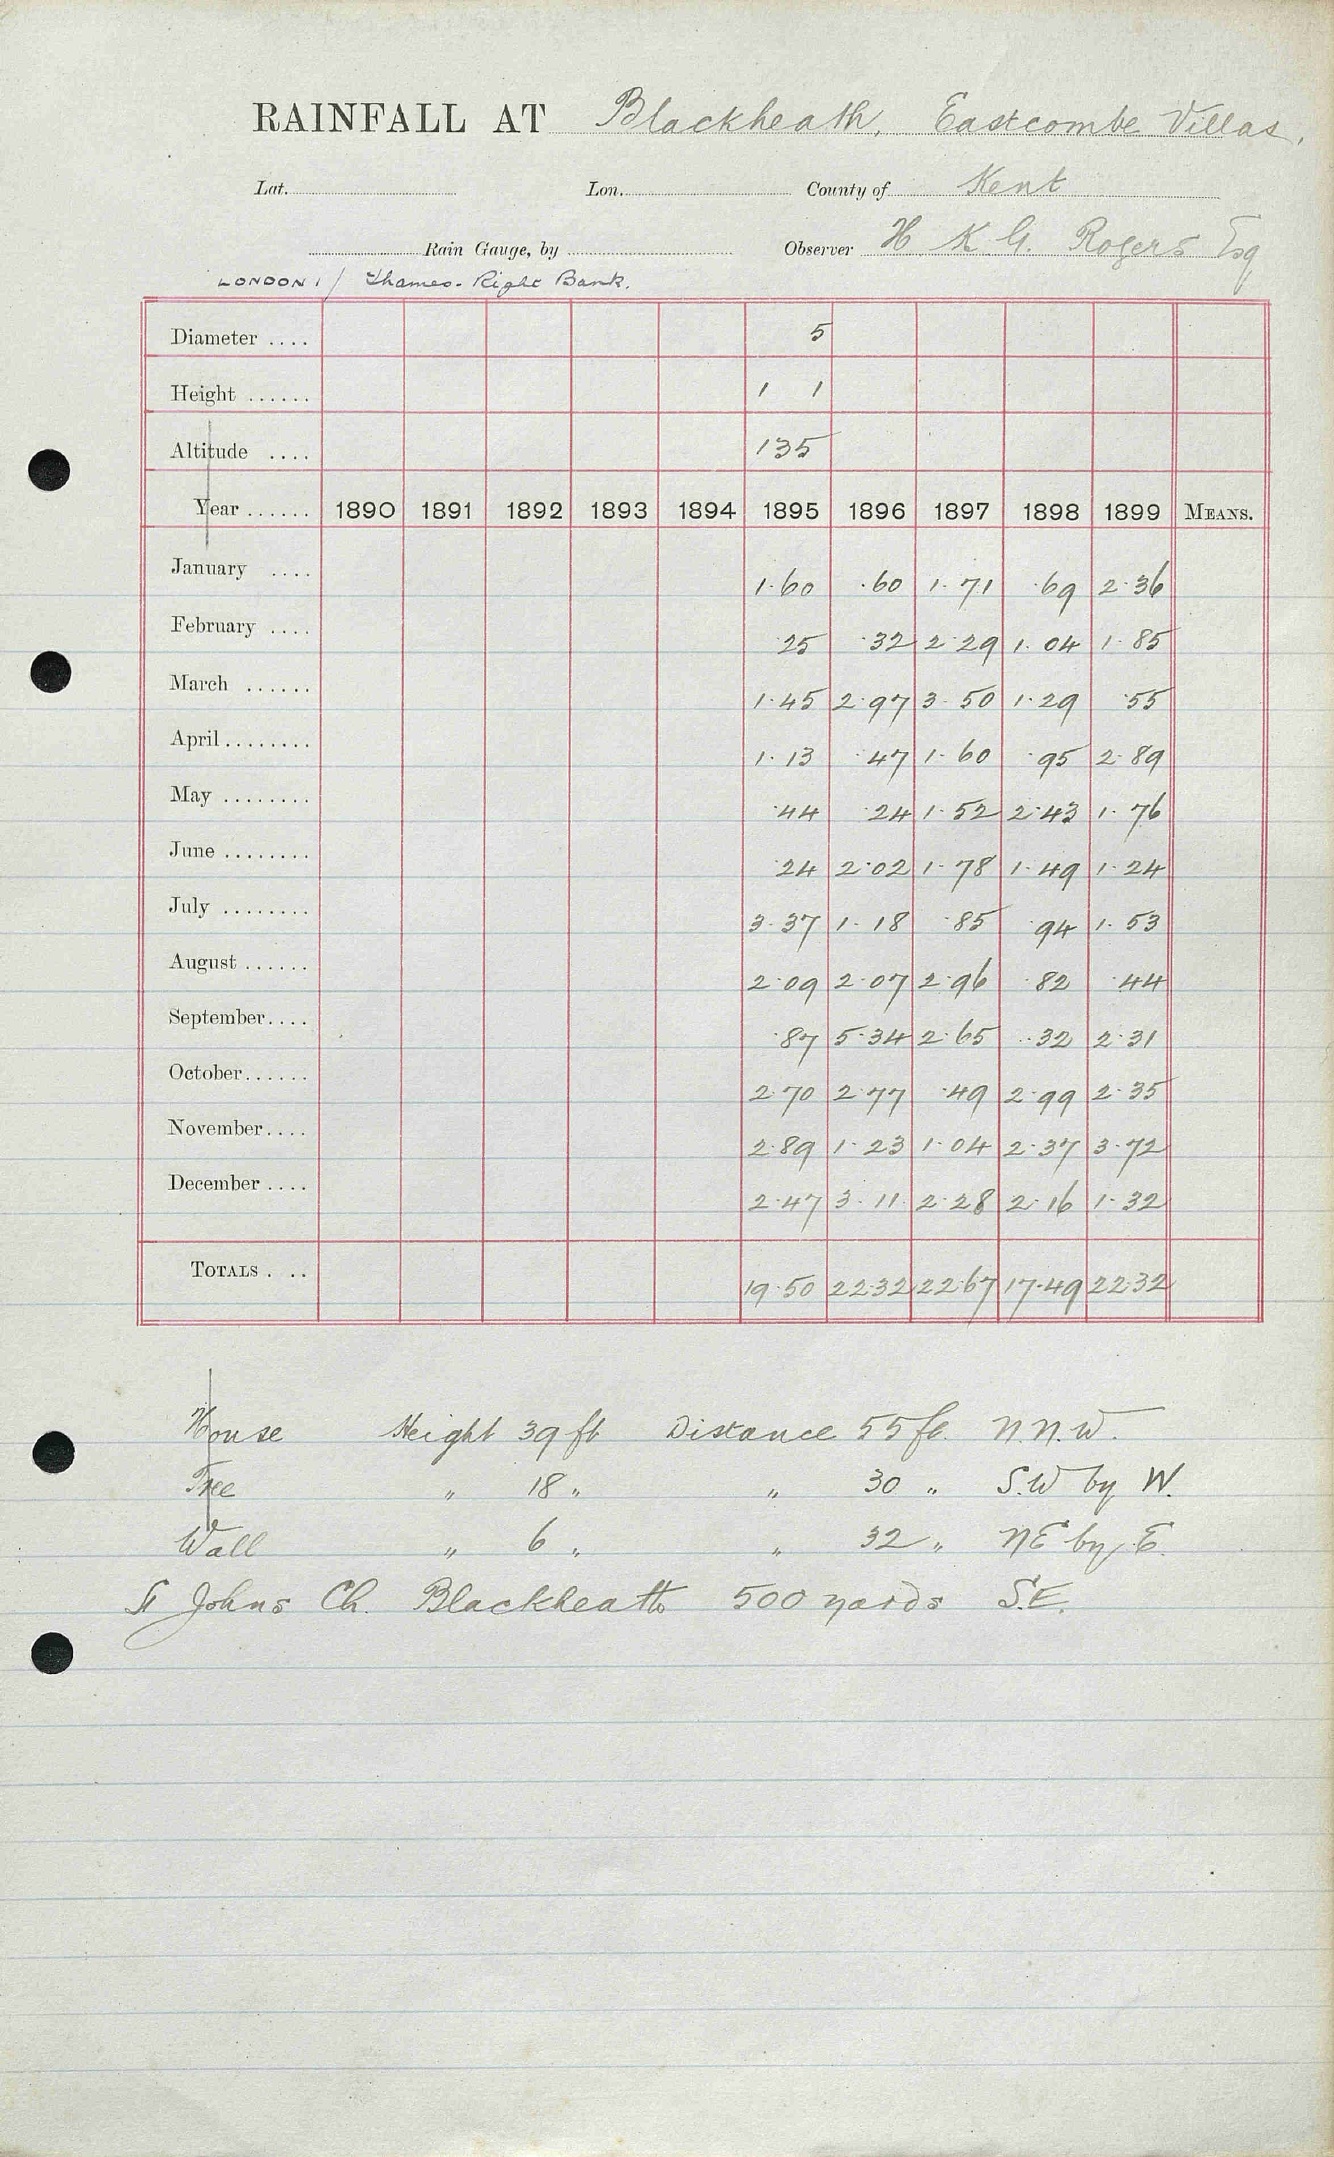 RAINFALL AT Blackheath, Eastcombe Villas,
Lat. Lon. County of Kent
Rain Gauge, by Observer H K G. Rogers Esq
LONDON 1 / Thames. Right Bank.
Diameter .... 5
Height ...... 1 1
Altitude .... 135
Year ...... 1890 1891 1892 1893 1894 1895 1896 1897 1898 1899 MEANS.
January .... 1.60 .60 1.71 .69 2.36
February .... .25 .32 2.29 1.04 1.85
March ...... 1.45 2.97 3.50 1.29 .55
April ........ 1.13 .47 1.60 .95 2.89
May ........ .44 .24 1.52 2.43 1.76
June ........ .24 2.02 1.78 1.49 1.24
July ........ 3.37 1.18 .85 .94 1.53
August ...... 2.09 2.07 2.96 .82 .44
September .... .87 5.34 2.65 .32 2.31
October ...... 2.70 2.77 .49 2.99 2.35
November .... 2.89 1.23 1.04 2.37 3.72
December .... 2.47 3.11 2.28 2.16 1.32
TOTALS . .. 19.50 22.32 22.67 17.49 22.32
House Height 39 ft Distance 55 ft. N.N.W.
Tree " 18 " " 30 " S.W by W.
Wall " 6 " " 32 " NE by E.
St Johns Ch. Blackheath 500 yards S.E.